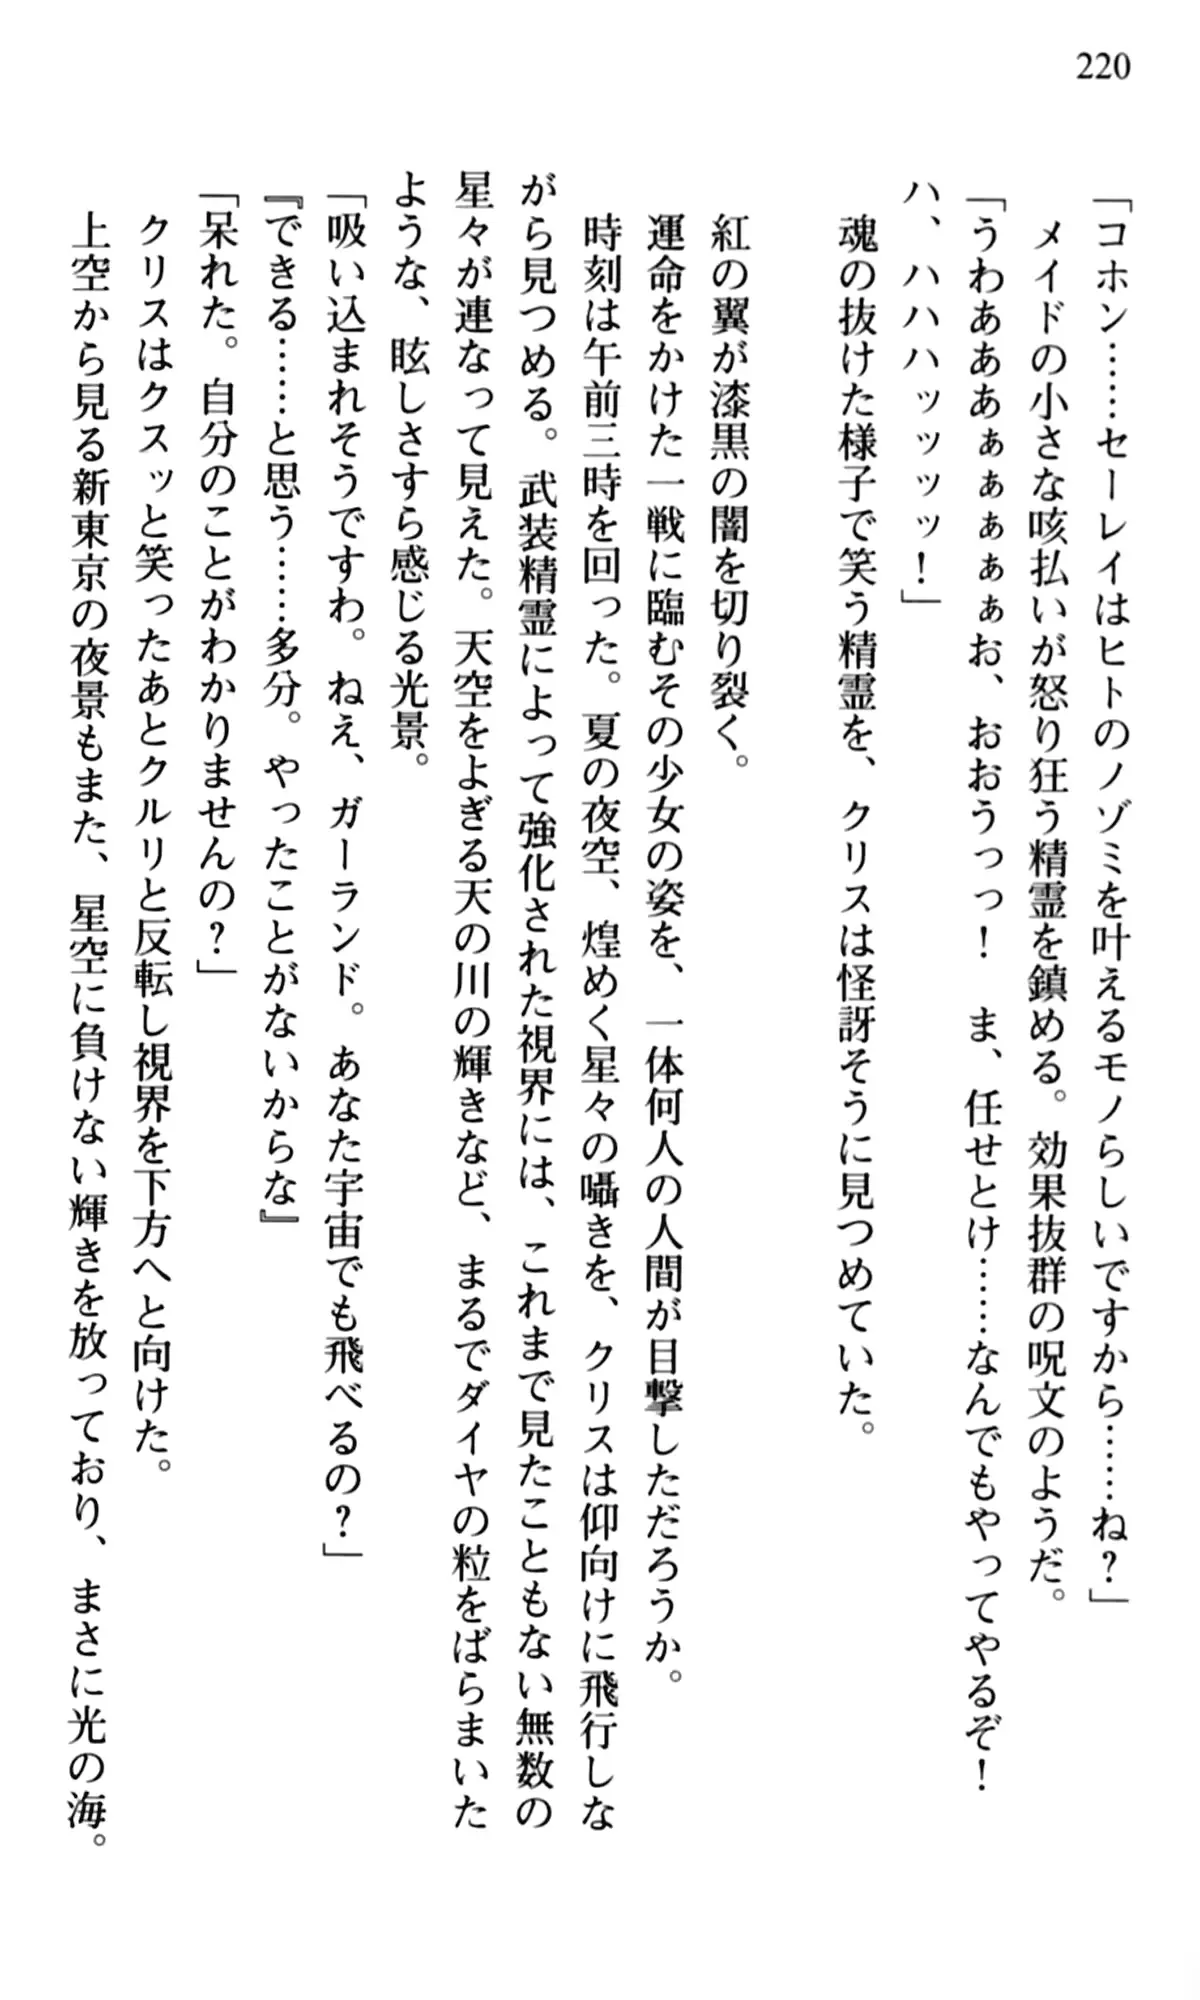 220
「コホン……セーレイはヒトのノゾミを叶えるモノらしいですから……ね？」
メイドの小さな咳払いが怒り狂う精霊を鎮める。効果抜群の呪文のようだ。
「うわああぁぁぁぁぁお、おおうっっ！　ま、任せとけ……なんでもやってやるぞ！
ハ、ハハハッッッッ！」
魂の抜けた様子で笑う精霊を、クリスは怪訝そうに見つめていた。
紅の翼が漆黒の闇を切り裂く。
運命をかけた一戦に臨むその少女の姿を、一体何人の人間が目撃しただろうか。
時刻は午前三時を回った。夏の夜空、煌めく星々の囁きを、クリスは仰向けに飛行しな
がら見つめる。武装精霊によって強化された視界には、これまで見たこともない無数の
星々が連なって見えた。天空をよぎる天の川の輝きなど、まるでダイヤの粒をばらまいた
ような、眩しさすら感じる光景。
「吸い込まれそうですわ。ねえ、ガーランド。あなた宇宙でも飛べるの？」
『できる……と思う……多分。やったことがないからな』
「呆れた。自分のことがわかりませんの？」
クリスはクスッと笑ったあとクルリと反転し視界を下方へと向けた。
上空から見る新東京の夜景もまた、星空に負けない輝きを放っており、まさに光の海。